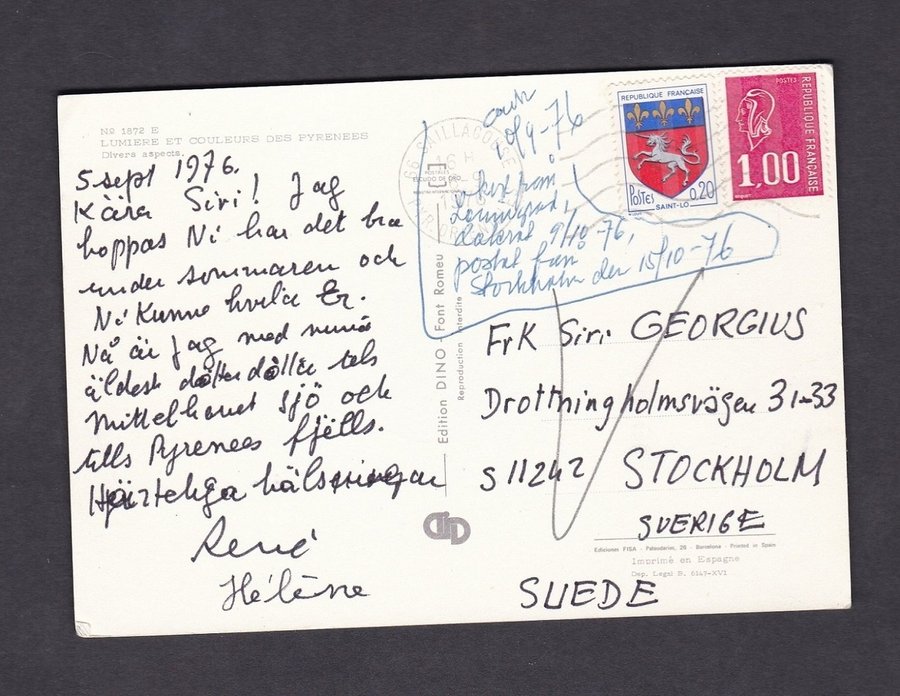 Nº 1872 E
LUMIERE ET COULEURS DES PYRENEES
Divers aspects
5 sept 1976.
Kära Siri! Jag
hoppas Ni har det bra
under sommaren och
Ni kunne hvila Er.
Nå är Jag med
äldest tels
Mittelhavet sjö och
tells Pyrenees fjells.
Hjärteliga hälsningar
René
Hélène
Edition DINO - Font Romeu
Reproduction interdite
från
9/10-76,
postat från
Stockholm den 15/10-76
REPUBLIQUE FRANÇAISE
POSTES 0,20
SAINT-LO
POSTES
1,00
REPUBLIQUE FRANÇAISE
Frk Siri GEORGIUS
Drottningholmsvägen 31-33
S 11242 STOCKHOLM
SVERIGE
Ediciones FISA - Palaudarias, 26 - Barcelona - Printed in Spain
Imprimé en Espagne
Dep. Legal B. 6147-XVI
SUEDE